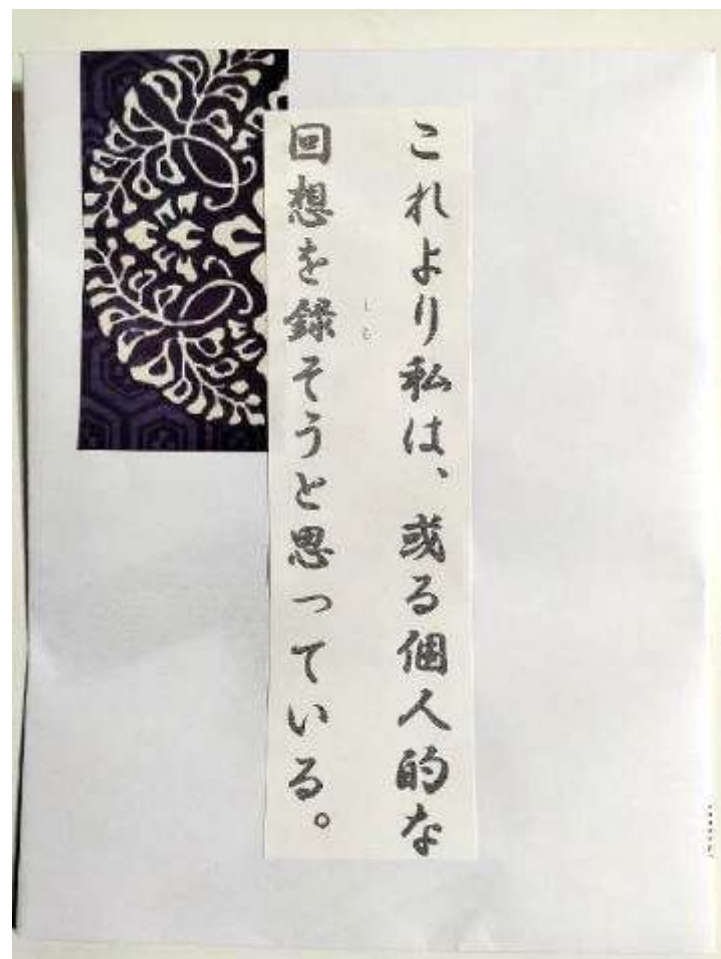 これより私は、或る個人的な
回想を録そうと思っている。
しる